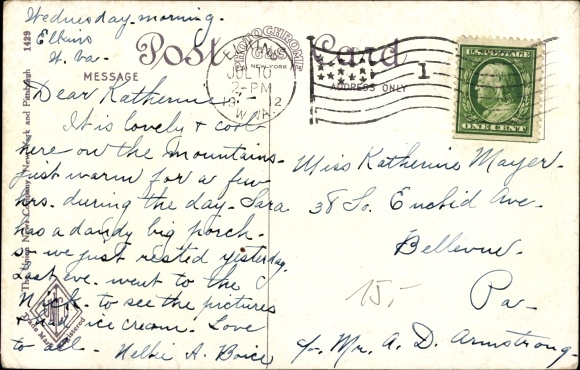 Wednesday morning.
Elkins
W. Va.
Post Card
PHOTOCHROME
NEW YORK
MESSAGE
ADDRESS ONLY
ELKINS
JUL 10
2-PM
W.VA.
1
U.S. POSTAGE
ONE CENT
Dear Katherine
It is lovely & cool
here on the mountains.
Just warm for a few
hrs. during the day. Sara
has a dandy big porch.
so we just rested yesterday.
Last eve. went to the
Nick. to see the pictures
& had ice cream. Love
to all. Nellie A. Boice
Miss Katherine Mayer.
38 So. Euclid Ave.
Bellevue.
Pa.
c/o Mr. A. D. Armstrong.
15,-
The Union News Company, New York and Pittsburgh 1429
Trade Mark Registered